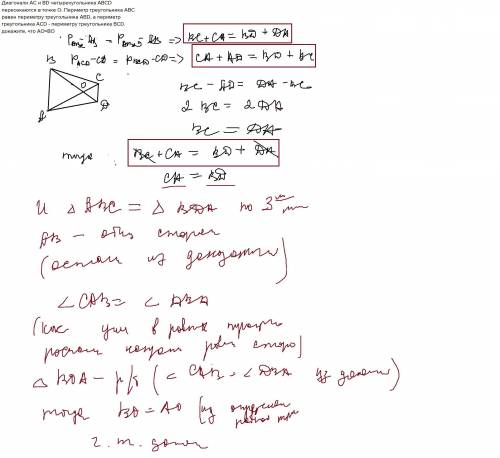 Диагонали AC и BD четырехугольника ABCD
пересекаются в точке O. Периметр треугольника ABC
равен периметру треугольника ABD, а периметр
треугольника ACD - периметру треугольника BCD.
докажите, что AO=BO
P_ABC - AB = P_ABD - AB => BC + CA = BD + DA
P_ACD - CD = P_BCD - CD => CA + AD = BD + BC
B
C
O
D
A
BC - AD = DA - BC
2 BC = 2 DA
BC = DA
тогда BC + CA = BD + DA
CA = BD
И △ ABC = △ BDA по 3
AB - общ сторона
(остал из доказ)
∠ CAB = ∠ DBA
(как угл в равных
△ BOA - р/б (∠ CAB = ∠ DBA из
тогда BO = AO (из
ч. т. д